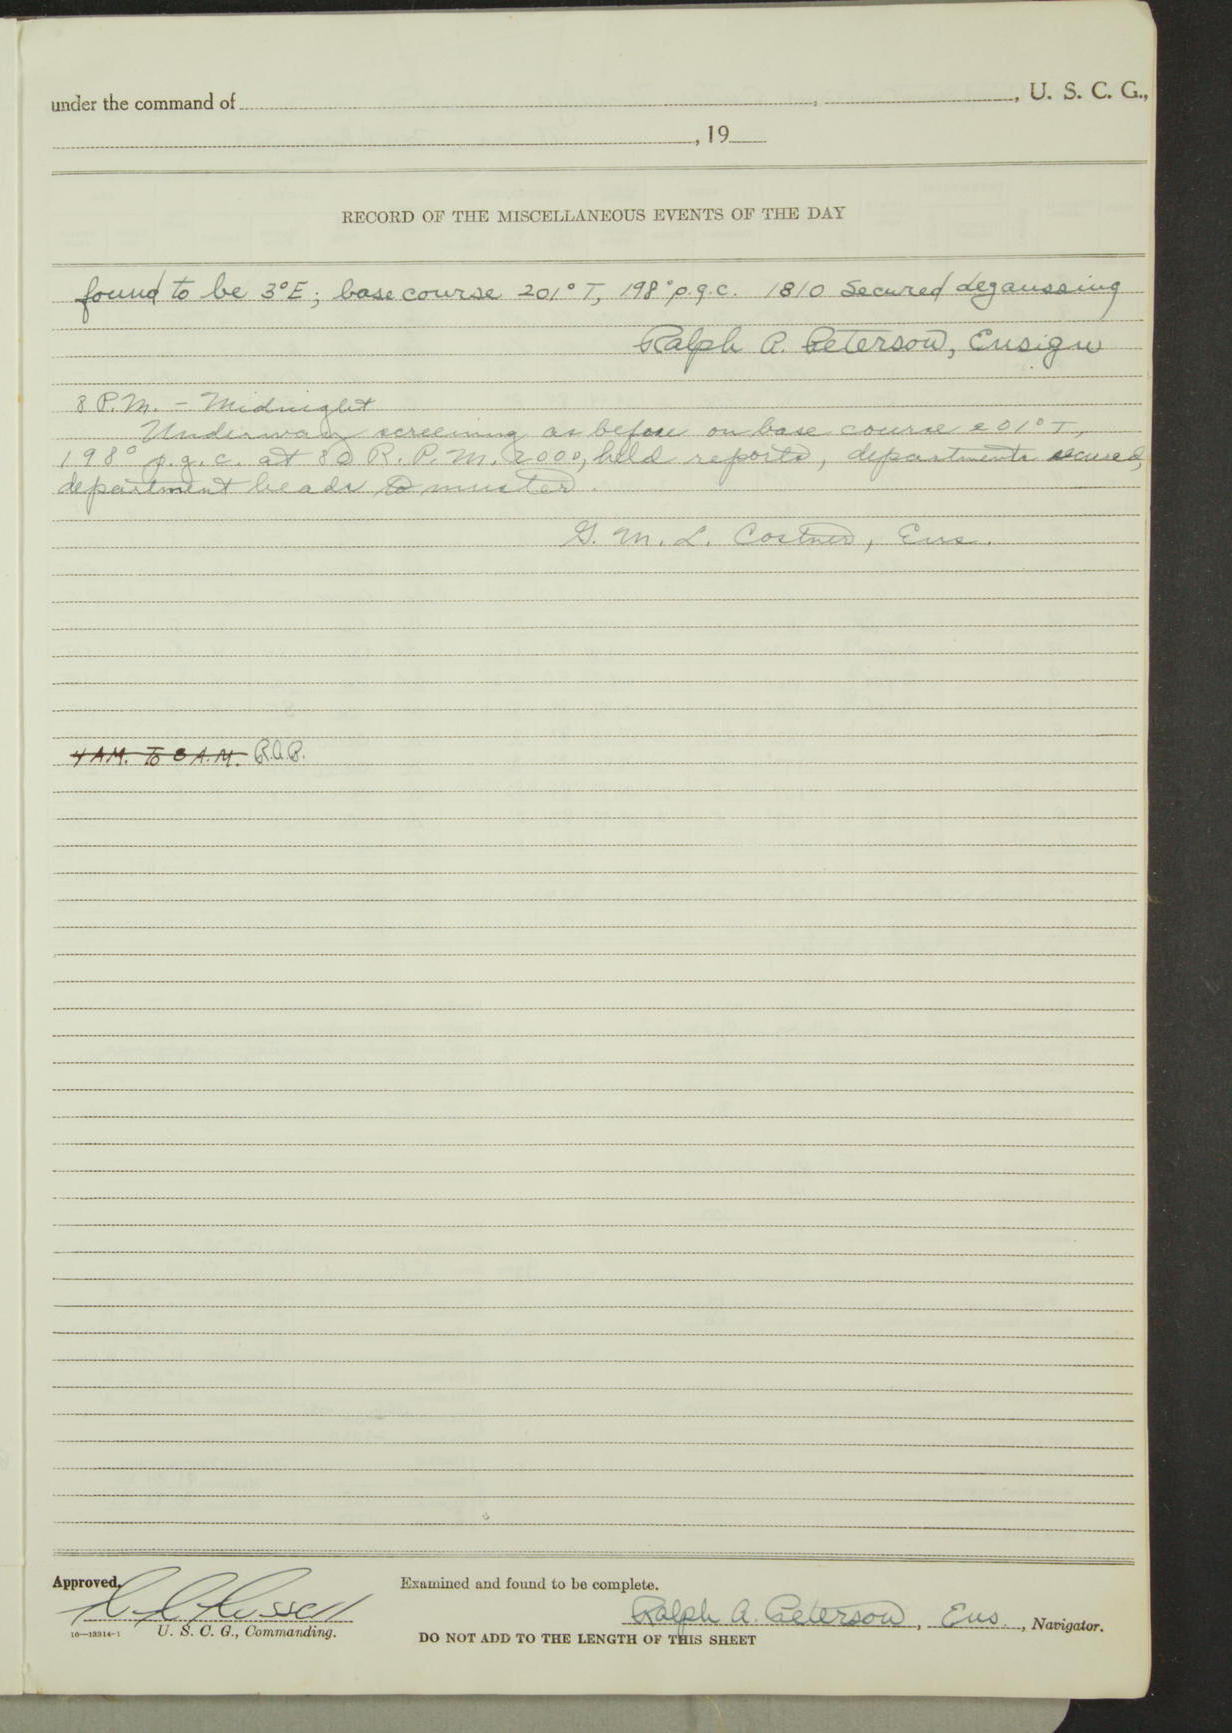 under the command of , , U. S. C. G.,
, 19
RECORD OF THE MISCELLANEOUS EVENTS OF THE DAY
found to be 3°E; base course 201° T, 198° p.g.c. 1810 Secured degaussing
Ralph A. Peterson, Ensign
8 P.M. - Midnight
Underway screening as before on base course 201° T,
198° p.g.c. at 80 R.P.M. 2000, held reports, departments secured,
department heads to muster.
G. M. L. Costner, Ens.
4 A.M. To 8 A.M. R.A.P.
Approved,
Examined and found to be complete.
Russell
Ralph A. Peterson, Ens., Navigator.
16—13314-1 U. S. C. G., Commanding.
DO NOT ADD TO THE LENGTH OF THIS SHEET